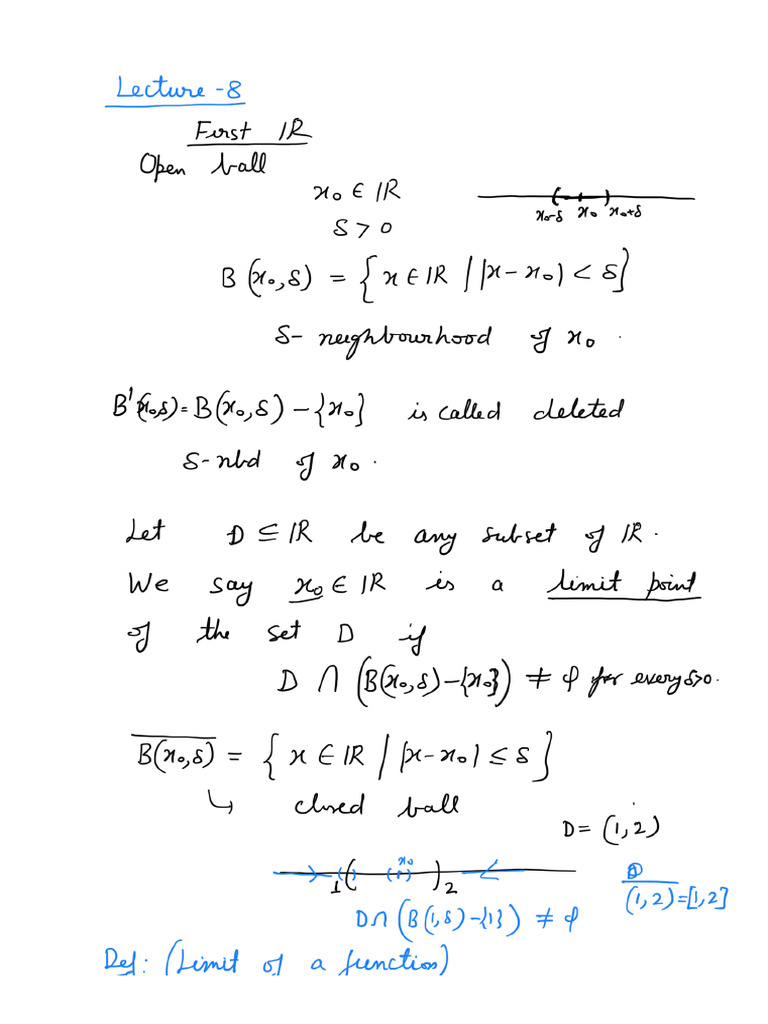 Lecture -8
First IR
Open ball
x₀ ∈ IR
x₀-δ x₀ x₀+δ
δ > 0
B(x₀,δ) = {x ∈ IR / |x-x₀| < δ}
δ- neighbourhood of x₀.
B'(x₀,δ) = B(x₀,δ) - {x₀} is called deleted
δ-nbd of x₀.
Let D ⊆ IR be any subset of IR.
We say x₀ ∈ IR is a limit point
of the set D if
D ∩ (B(x₀,δ)-{x₀}) ≠ φ for every δ>0.
\overline{B(x₀,δ)} = {x ∈ IR / |x-x₀| ≤ δ}
↳ closed ball
D = (1,2)
x₀
1 ( ) 2
\overline{(1,2)} = [1,2]
D∩(B(1,δ)-{1}) ≠ φ
Def: (Limit of a function)